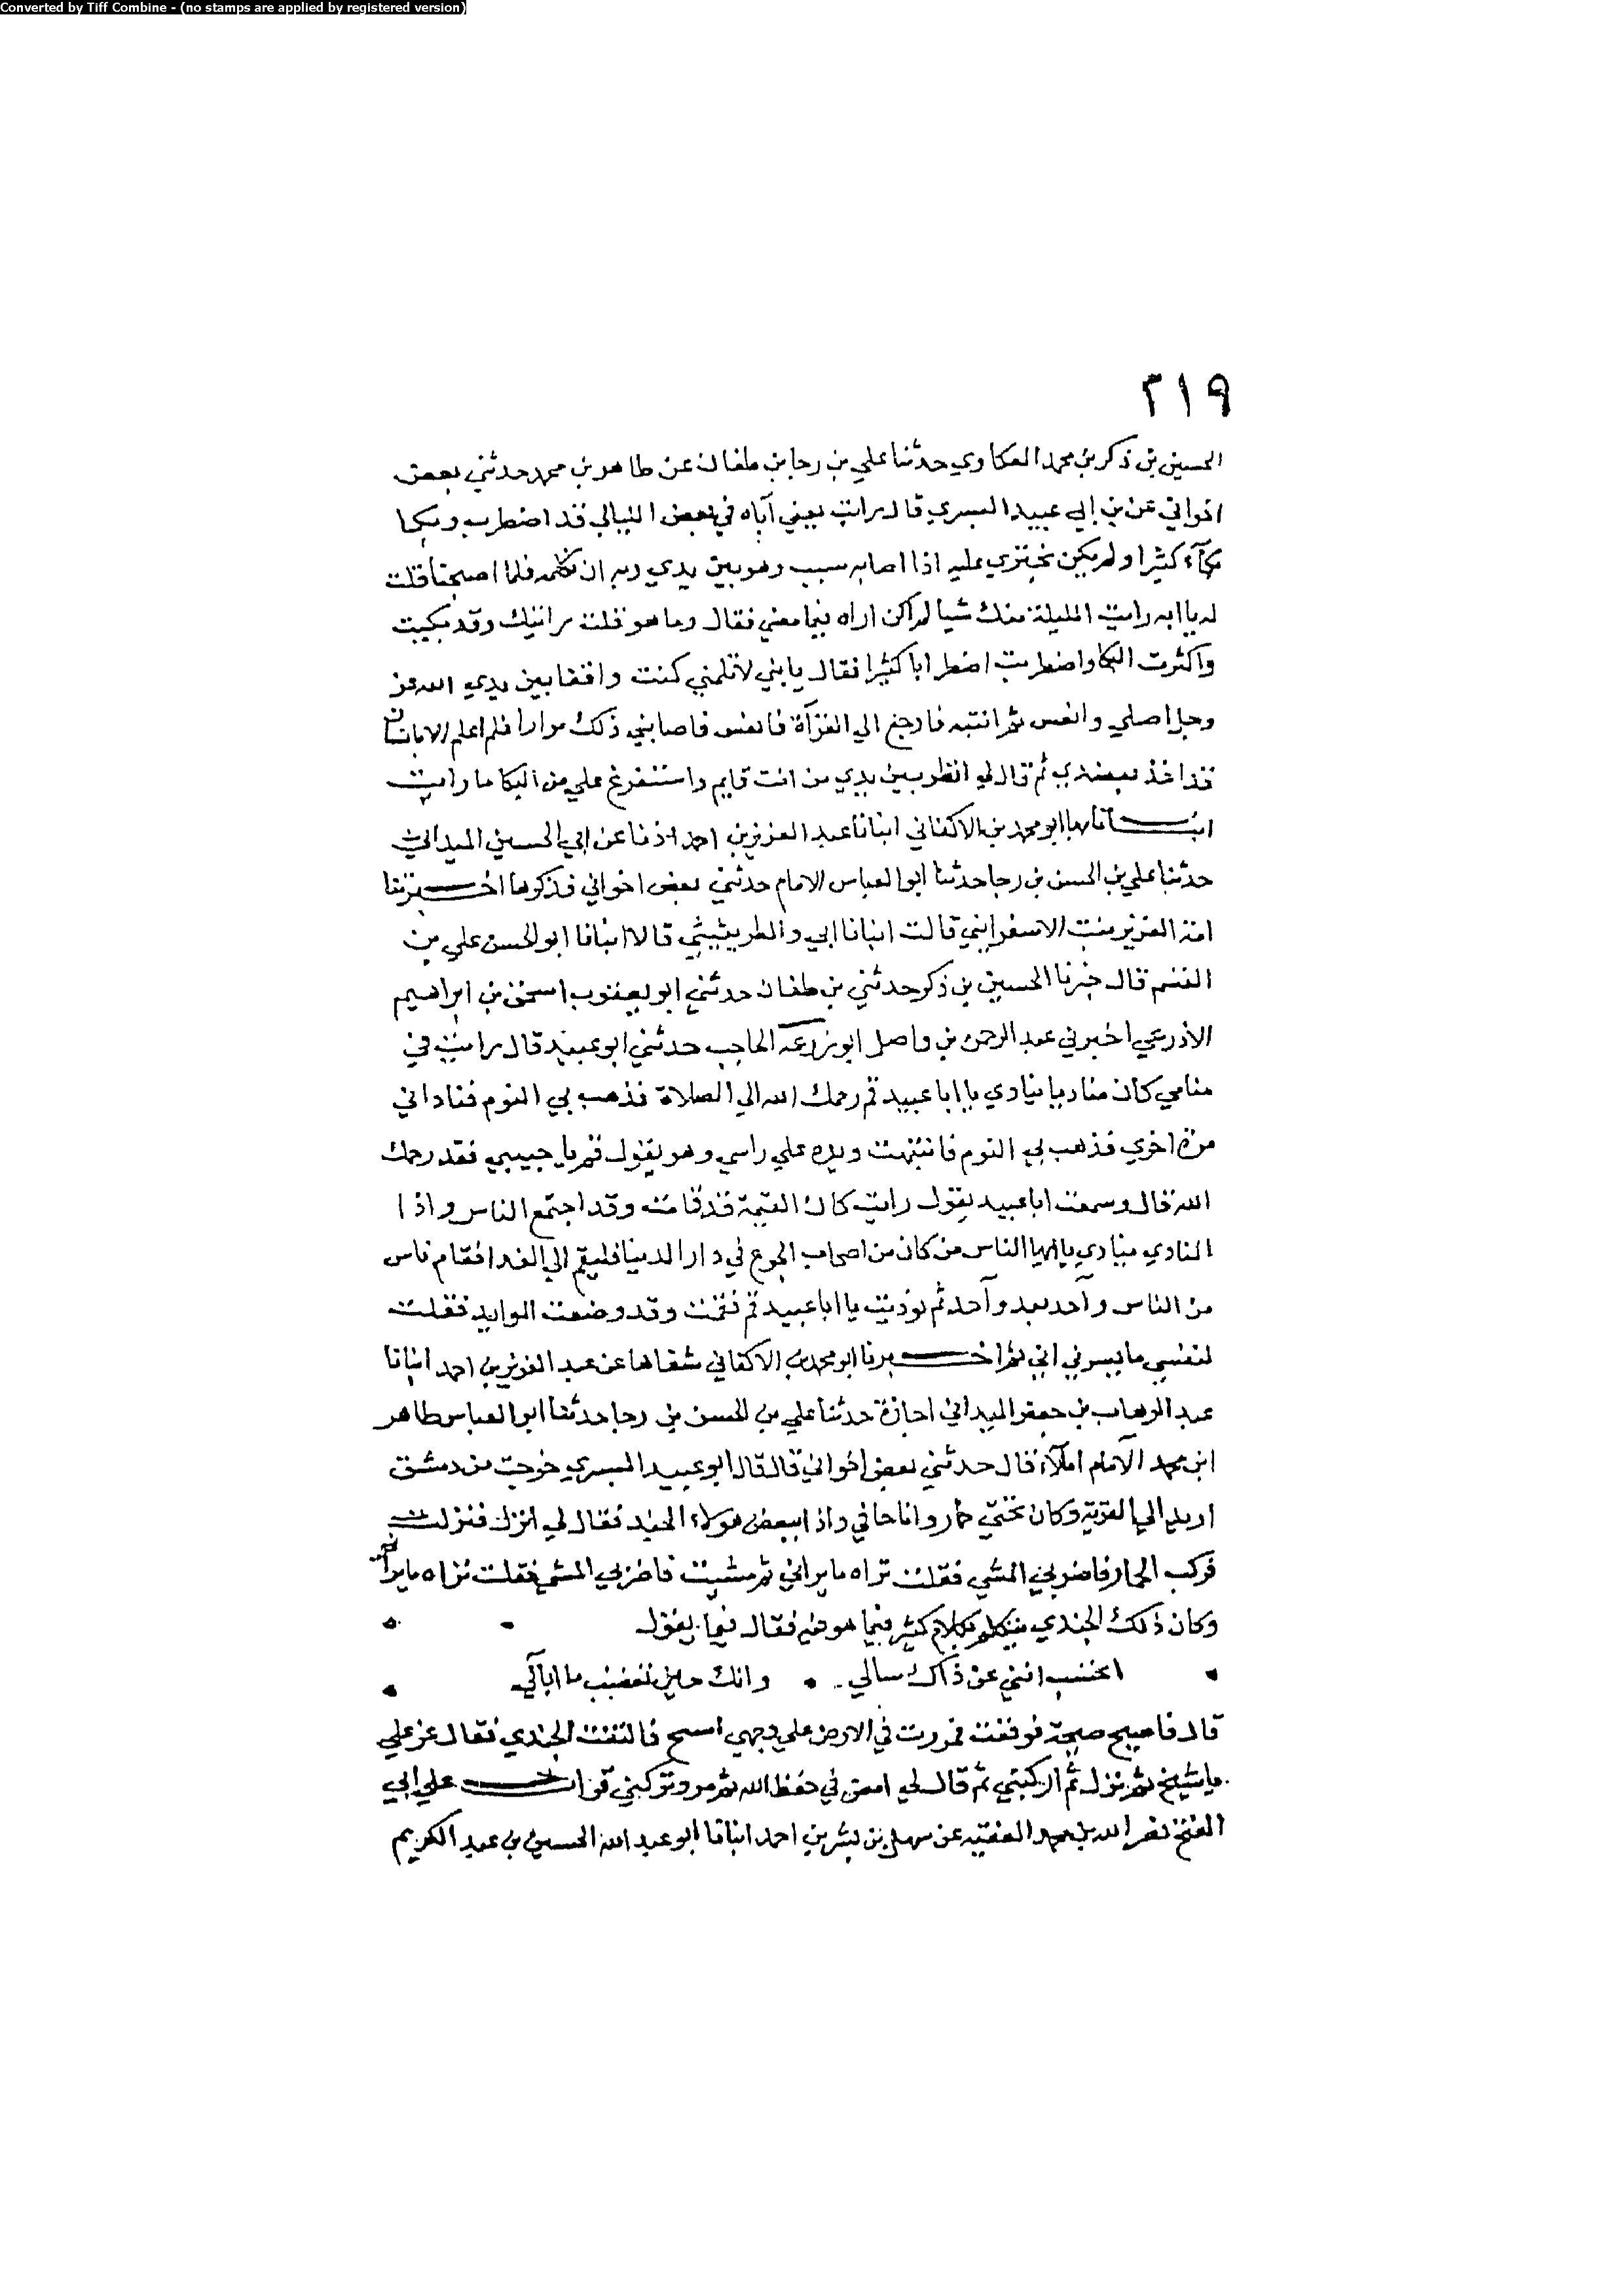 Converted by Tiff Combine - (no stamps are applied by registered version)
٣١٩
الحسين بن ذكر بن محمد العكاوي حدثنا علي بن رجا بن طغان عن طاهر بن محمد حدثني بعض
اخواني عن بن ابي عبيد البسري قال رايت يعني آباه في بعض الليالي قد اضطرب وبكا
بكآء كثيرا ولم يكن نجتزي عليه اذا اصابه سبب وهو بين يدي ربه ان نكلمه فلما اصبحنا قلت
له يا ابه رايت الليلة منك شيا لم اكن اراه فيما مضي فقال وما هو قلت رايتك وقد بكيت
واكثرت البكا واضطربت اضطرابا كثيرا فقال يا بني لا تلمني كنت واقفا بين يدي الله عز
وجل اصلي وانعس ثم انتبه فارجع الي القرآة فانعس فاصابني ذلك مرارا فلم اعلم الا بانسان
قد اخذ بعضدي ثم قال لي انظر بين يدي من انت قايم واستفرغ علي من البكا ما رايت
انبــــانا بها ابو محمد بن الاكفاني انبانا عبد العزيز بن احمد اذنا عن ابي الحسين الميداني
حدثنا علي بن الحسن بن رجا حدثنا ابو العباس الامام حدثني بعض اخواني فذكرها اخــــبرتنا
امة العزيز بنت الاسفرايني قالت انبانا ابي والطريثيثي قالا انبانا ابو الحسن علي بن
القسم قال خبرنا الحسين بن ذكر حدثني بن طغان حدثني ابو يعقوب اسحق بن ابراهيم
الاذرعي اخبرني عبد الرحمن بن واصل ابو زرعة الحاجب حدثني ابو عبيد قال رايت في
منامي كان مناديا ينادي يا ابا عبيد قم رحمك الله الي الصلاة فذهب بي النوم فناداني
مرة اخري فذهب بي النوم فانتبهت ويده علي راسي وهو يقول قم يا حبيبي فقد رحمك
الله قال وسمعت ابا عبيد يقول رايت كان القيمة قد قامت وقد اجتمع الناس واذا
المنادي ينادي يا ايها الناس من كان من اصحاب الجوع في دار الدنيا فليقم الي الغدا فقام ناس
من الناس وآحد بعد وآحد ثم نوديت يا ابا عبيد قم فقمت وقد وضعت الموايد فقلت
لنفسي ما يسرني اني ثم اخــــبرنا ابو محمد بن الاكفاني شفاها عن عبد العزيز بن احمد انبانا
عبد الوهاب بن جعفر الميداني اجازة حدثنا علي بن الحسن بن رجا حدثنا ابو العباس طاهر
ابن محمد الآمام املآء قال حدثني بعض اخواني قال قال ابو عبيد البسري خرجت من دمشق
اريد الي القرية وكان تحتي حمار وانا حافي واذا ببعض هولاء الجند فقال لي انزل فنزلت
فركب الحمار فاضر بي المشي فقلت تراه ما يراني ثم مشيت فاضر بي المشي فقلت تراه ما يراني
وكان ذلك الجندي يتكلم بكلام كثير فيما هو فيه فقال فيما يقول
اتحسب انني عن ذاك سالي . وانك حين تغضب ما اباآلي
قال فاصيح صيحة فوقفت فمررت في الارض علي وجهي اسيح فالتفت الجندي فقال عز علي
يا شيخ ثم نزل ثم اركبني ثم قال لي امض في حفظ الله ثم مر وتركبني قرات علي ابي
الفتح نصر الله بن محمد الفقيه عن سهل بن بشر بن احمد انبانا ابو عبد الله الحسين بن عبد الكريم